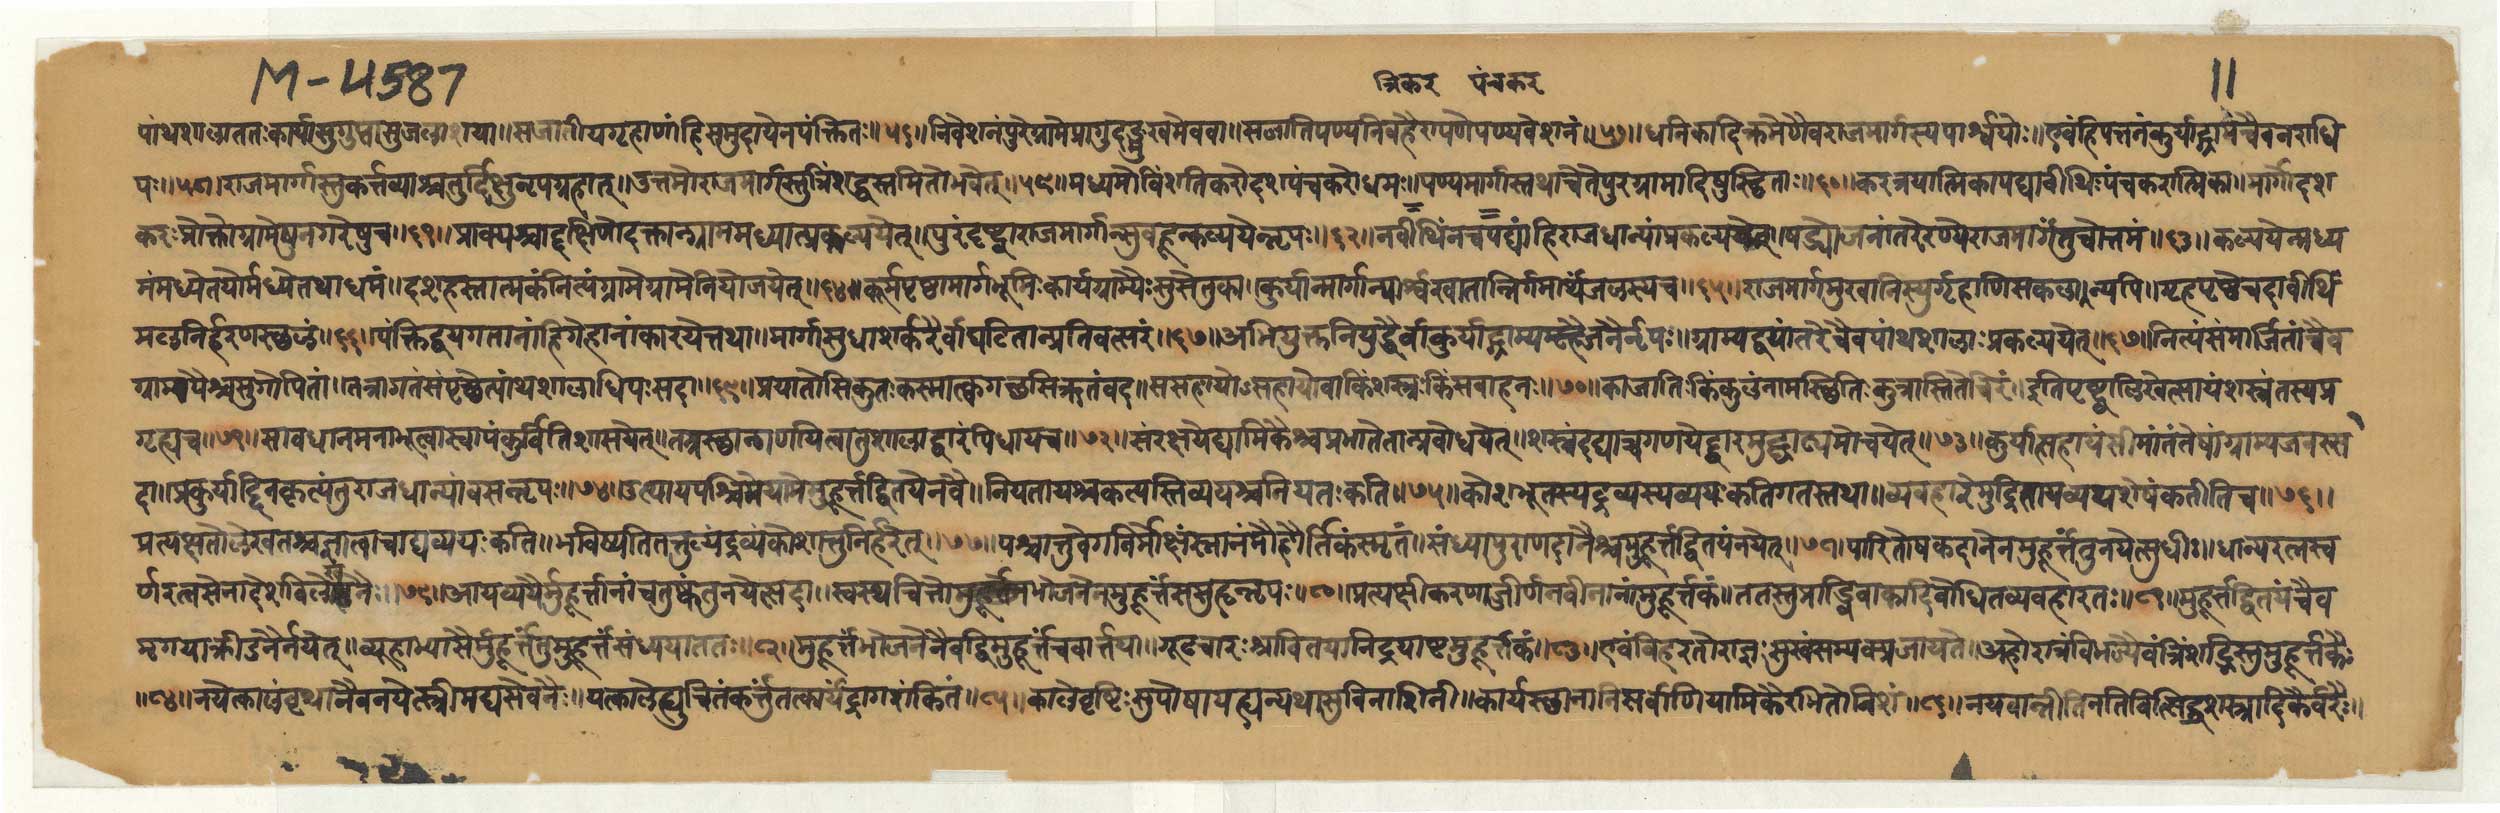 M-4587
त्रिकर पंचकर
11
पांथशालाततःकार्यासुगुप्तासुजलाशया॥सजातीयगृहाणांहिसमुदायेनपंक्तितः॥५६॥निवेशनंपुरेग्रामेप्रागुदङ्मुखमेववा॥सजातिपण्यनिवहैरापणेपण्यवेशनं॥५७॥धनिकादिक्रमेणैवराजमार्गस्यपार्श्वयोः॥एवंहिपत्तनंकुर्याद्ग्रामंचैवनराधि
पः॥५८॥राजमार्गास्तुकर्त्तव्याश्चतुर्दिक्षुनृपग्रहात्॥उत्तमोराजमार्गस्तुत्रिंशद्धस्तमितोभवेत्॥५९॥मध्यमोविंशतिकरोदशपंचकरोधमः॥पण्यमार्गास्तथाचैतेपुरग्रामादिषुस्थिताः॥६०॥करत्रयात्मिकापद्यावीथिःपंचकरात्मिका॥मार्गोदश
करःप्रोक्तोग्रामेषुनगरेषुच॥६१॥प्राक्पश्चाद्दक्षिणोदक्तान्ग्राममध्यात्प्रकल्पयेत्॥पुरंदृष्ट्वाराजमार्गान्सुबहून्कल्पयेन्नृपः॥६२॥नवीथिंनचपद्यांहिराजधान्यांप्रकल्पयेत्॥षड्योजनांतरेरण्येराजमार्गंतुचोत्तमं॥६३॥कल्पयेन्मध्य
मंमध्येतयोर्मध्येतथाधमं॥दशहस्तात्मकंनित्यंग्रामेग्रामेनियोजयेत्॥६४॥कूर्मपृष्ठामार्गभूमिःकार्याग्राम्यैःसुसेतुका॥कुर्यान्मार्गान्पार्श्वखातान्निर्गमार्थंजलस्यच॥६५॥राजमार्गमुखानिस्युर्गृहाणिसकलान्यपि॥गृहपृष्ठेचदावीथिं
मलनिर्हरणस्थलं॥६६॥पंक्तिद्वयगतानांहिगेहानांकारयेत्तथा॥मार्गासुधाशर्करैर्वाघटितान्प्रतिवत्सरं॥६७॥अभियुक्तनिरुद्धैर्वाकुर्याद्ग्राम्यष्टैर्जनैर्नृपः॥ग्राम्यद्वयांतरेचैवपांथशालाःप्रकल्पयेत्॥६८॥नित्यंसंमार्जितांचैव
ग्राम्यपैश्चसुगोपितां॥तत्रागतंसंपृच्छेत्पांथशालाधिपःसदा॥६९॥प्रयातोसिकुतःकस्मात्क्वगच्छसिऋतंवद॥ससहायोऽसहायोवाकिंशस्त्रःकिंसवाहनः॥७०॥काजातिःकिंकुलंनामस्थितिःकुत्रास्तितेचिरं॥इतिपृष्ट्वालिखेत्सायंशस्त्रंतस्यप्र
गृह्यच॥७१॥सावधानमनाभूत्वास्वापंकुर्वितिशासयेत्॥तत्रस्थान्गणयित्वातुशालाद्वारंपिधायच॥७२॥संरक्षयेद्यामिकैश्चप्रभातेतान्प्रबोधयेत्॥शस्त्रंदद्याच्चगणयेद्द्वारमुद्घाट्यमोचयेत्॥७३॥कुर्यात्सहायंसीमांतंतेषांग्राम्यजनस्स
दा॥प्रकुर्याद्दिनकृत्यंतुराजधान्यांवसन्नृपः॥७४॥उत्थायपश्चिमेयामेमुहूर्त्तद्वितयेनवै॥नियतायश्चकत्यस्तिव्ययश्चनियतःकति॥७५॥कोशभूतस्यद्रव्यस्यव्ययःकतिगतस्तथा॥व्यवहारेमुद्रितायव्ययशेषंकतीतिच॥७६॥
प्रत्यक्षतोलेखतश्चज्ञात्वाचाद्यव्ययःकति॥भविष्यतितत्तुल्यंद्रव्यंकोशात्तुनिर्हरेत्॥७७॥पश्चात्तुवेगनिर्मोक्षंस्नानंमौहूर्त्तिकंस्मृतं॥संध्यापुराणदानैश्चमुहूर्त्तद्वितयंनयेत्॥७८॥पारितोषकदानेनमुहूर्त्तंतुनयेत्सुधीः॥धान्यरत्नस्व
र्णरत्नसेनादेशविलेखनैः॥७९॥आयव्ययैर्मुहूर्त्तानांचतुष्कंतुनयेत्सदा॥स्वस्थचित्तोभोजनेनमुहूर्त्तंससुहृन्नृपः॥८०॥प्रत्यक्षीकरणाज्जीर्णनवीनानांमुहूर्त्तकं॥ततस्तुप्राड्विवाकादिबोधितव्यवहारतः॥८१॥मुहूर्त्तद्वितयंचैव
मृगयाक्रीडनैर्नयेत्॥व्यूहाभ्यासैर्मुहूर्त्तंतुमुहूर्त्तंसंध्ययाततः॥८२॥मुहूर्त्तंभोजनेनैवद्विमुहूर्त्तंचवार्त्तया॥गूढचारःश्रावितयानिद्रयाष्टमुहूर्त्तकं॥८३॥एवंविहरतोराज्ञःसुखंसम्यक्प्रजायते॥अहोरात्रंविभज्यैवंत्रिंशद्भिस्तुमुहूर्त्तकैः
॥८४॥नयेत्कालंवृथानैवनयेत्स्त्रीमद्यसेवनैः॥यत्कालेह्युचितंकर्त्तुंतत्कार्यंद्रागशंकितं॥८५॥कालेवृष्टिःसुपोषायह्यन्यथासुविनाशिनी॥कार्यस्थानानिसर्वाणियामिकैरभितोनिशं॥८६॥नयवान्नीतिनतिवित्सिद्धशस्त्रादिकैर्वरैः॥